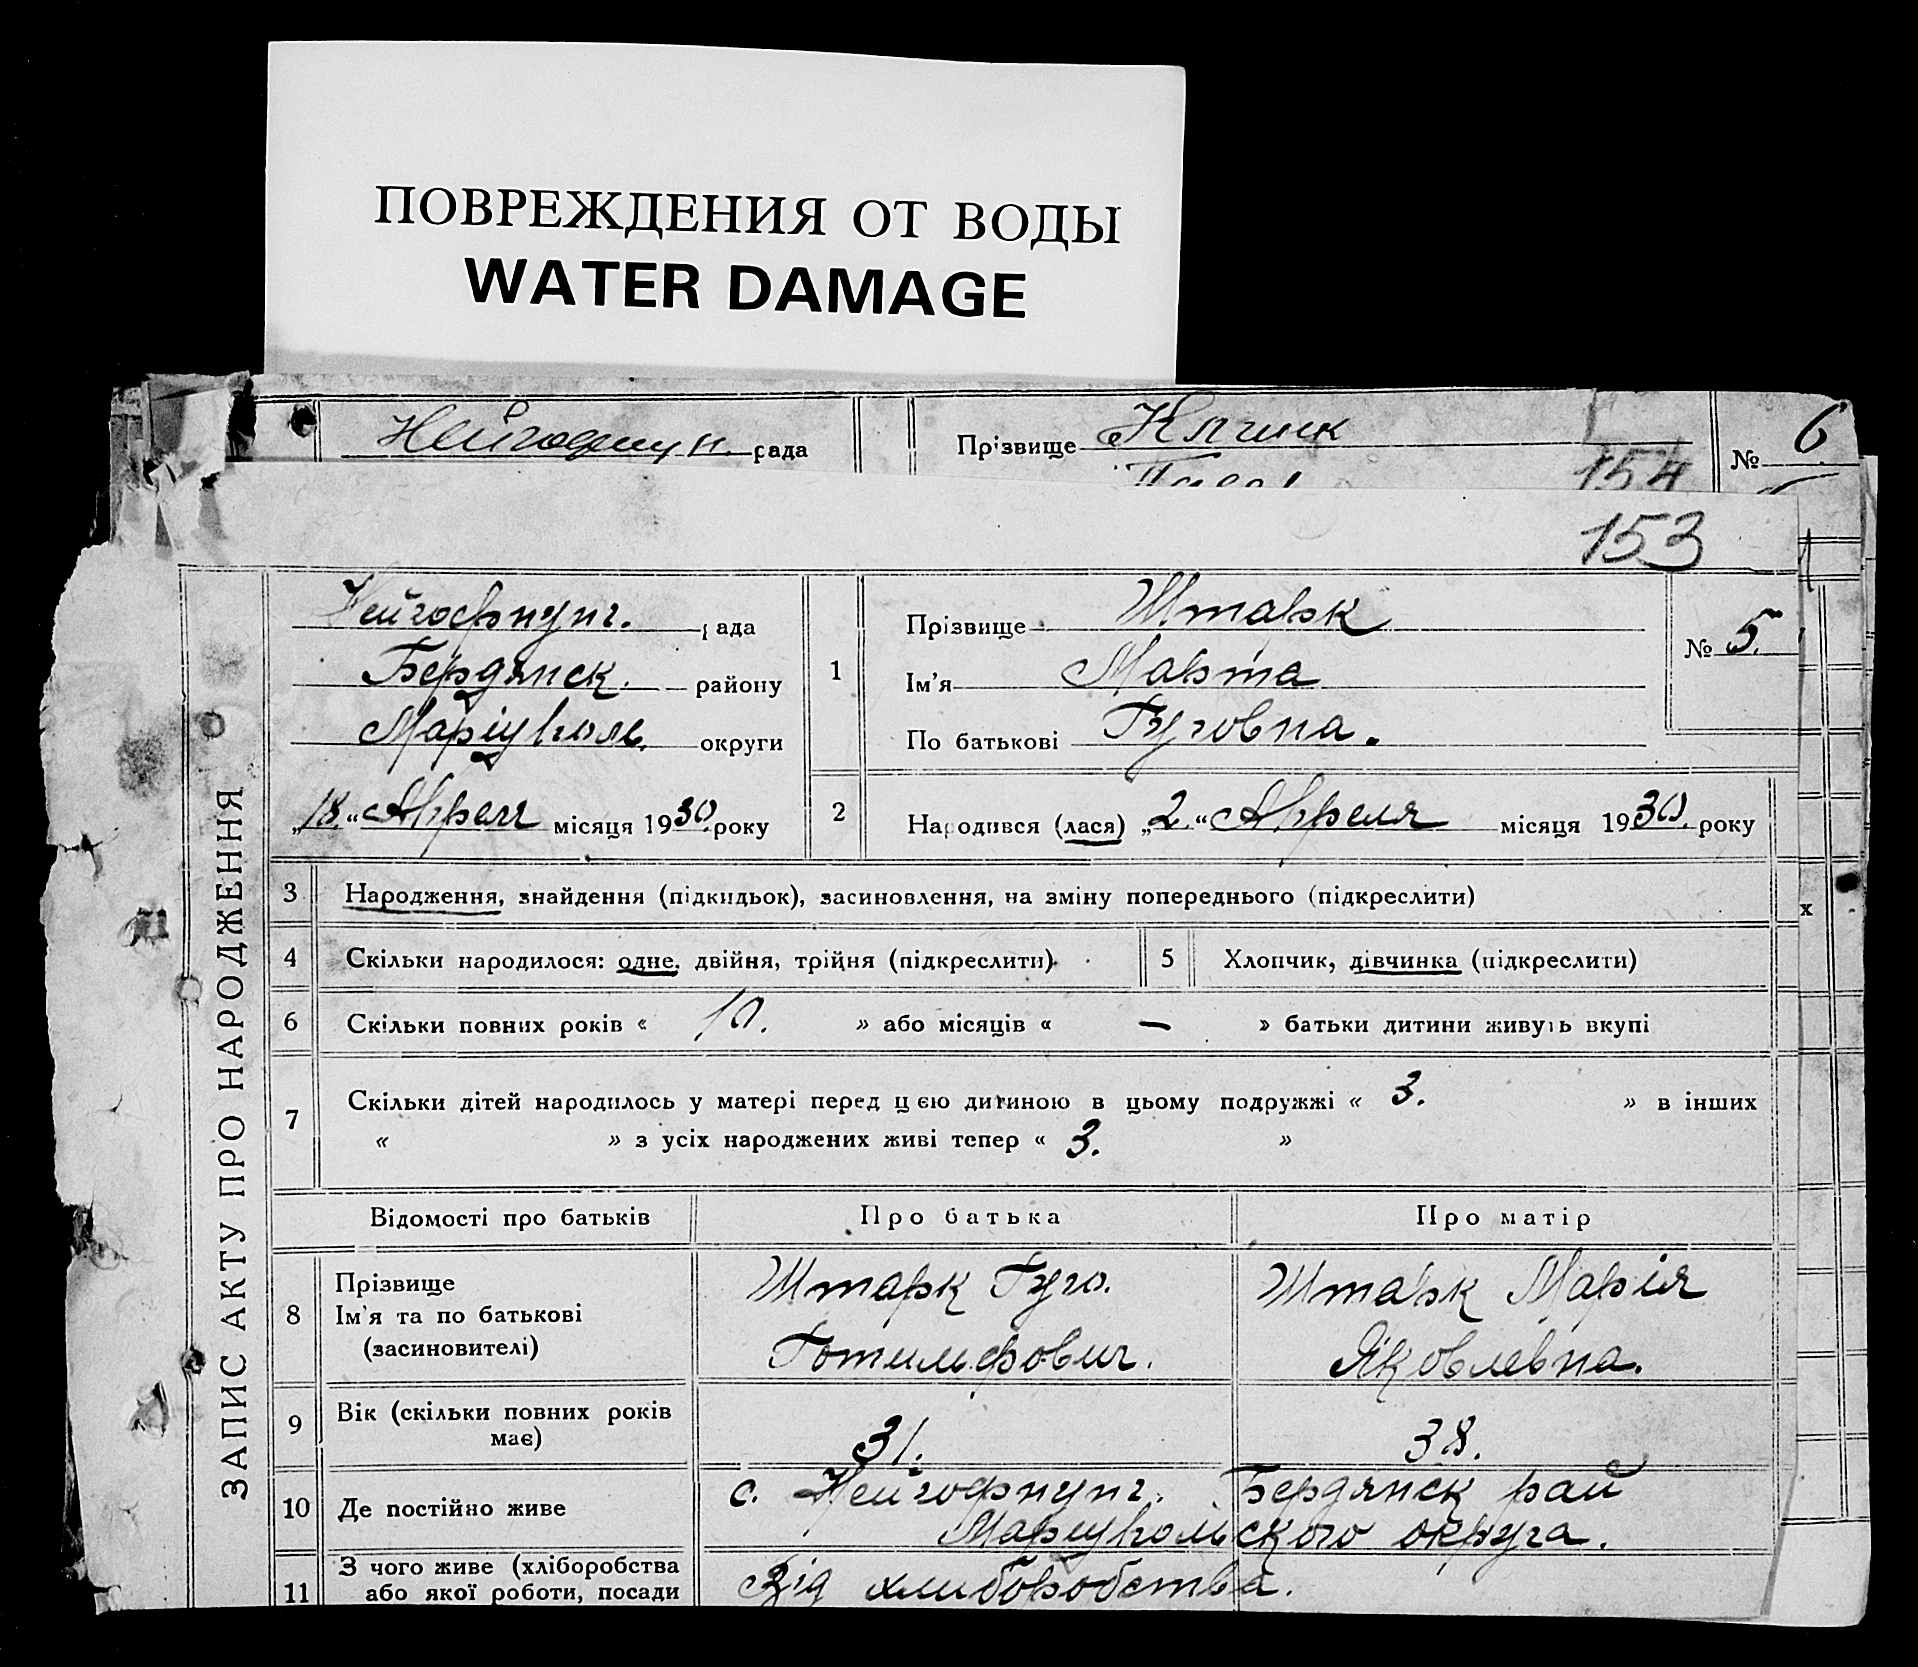 ПОВРЕЖДЕНИЯ ОТ ВОДЫ
WATER DAMAGE
рада
Прізвище Клинк
№ 6
154
153
Нейгофнунг. рада
Бердянск. району
Маріуполь. округи
„18.“ Апрел місяця 1930. року
1
Прізвище Штарк
Ім’я Марта
По батькові Гуговна.
№ 5.
2
Народився (лася) „2.“ Апреля місяця 1930. року
ЗАПИС АКТУ ПРО НАРОДЖЕННЯ
3 Народження, знайдення (підкидьок), засиновлення, на зміну попереднього (підкреслити)
4 Скільки народилося: одне, двійня, трійня (підкреслити)
5 Хлопчик, дівчинка (підкреслити)
6 Скільки повних років « 10. » або місяців « — » батьки дитини живуть вкупі
7 Скільки дітей народилось у матері перед цією дитиною в цьому подружжі « 3. » в інших
« » з усіх народжених живі тепер « 3. »
Відомості про батьків Про батька Про матір
8 Прізвище
Ім’я та по батькові
(засиновителі)
Штарк Гуго.
Готлильфович.
Штарк Марія
Яковлевна.
9 Вік (скільки повних років
має)
31.
38.
10 Де постійно живе
с. Нейгофнунг. Бердянск рай
Маріупольского округа.
11 З чого живе (хліборобства
або якої роботи, посади
Від хлиборобства.
х